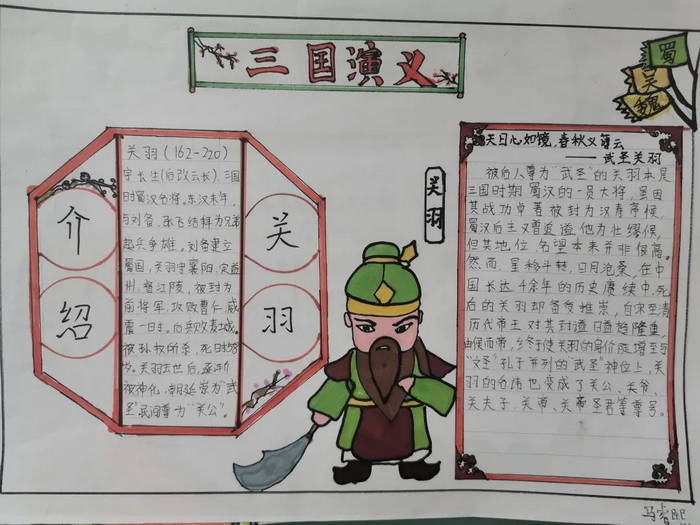 三国演义
蜀
吴
魏
介
绍
关羽（162-220）
字长生（后改云长），三国
时蜀汉名将，东汉末年，
与刘备、张飞结拜为兄弟
起兵争雄。刘备建立
蜀国，关羽守襄阳，定
州，督江陵，被封为
前将军，攻败曹仁，威
震一时。后兵败麦城，
被孙权所杀，死时58
岁。关羽去世后，逐渐
被神化，朝廷崇为“武
圣”民间尊为“关公”。
关
羽
关羽
天日心如镜，春秋义薄云
——武圣关羽
被后人尊为“武圣”的关羽本是
三国时期蜀汉的一员大将，虽因
其战功卓著被封为汉寿亭候，
蜀汉后主又曾追谥他为壮缪候，
但其地位、名望本来并非很高。
然而，星移斗转，日月沧桑，在中
国长达千余年的历史赓续中，死
后的关羽却备受推崇，自宋至清
历代帝王对其封道日趋隆重，
由侯而帝，乡终于使关羽的身价陡增至与
“文圣”孔子并列的“武圣”神位上，关
羽的名讳也变成了关公、关爷、
关夫子、关帝、关帝圣君等尊号。
马睿熙